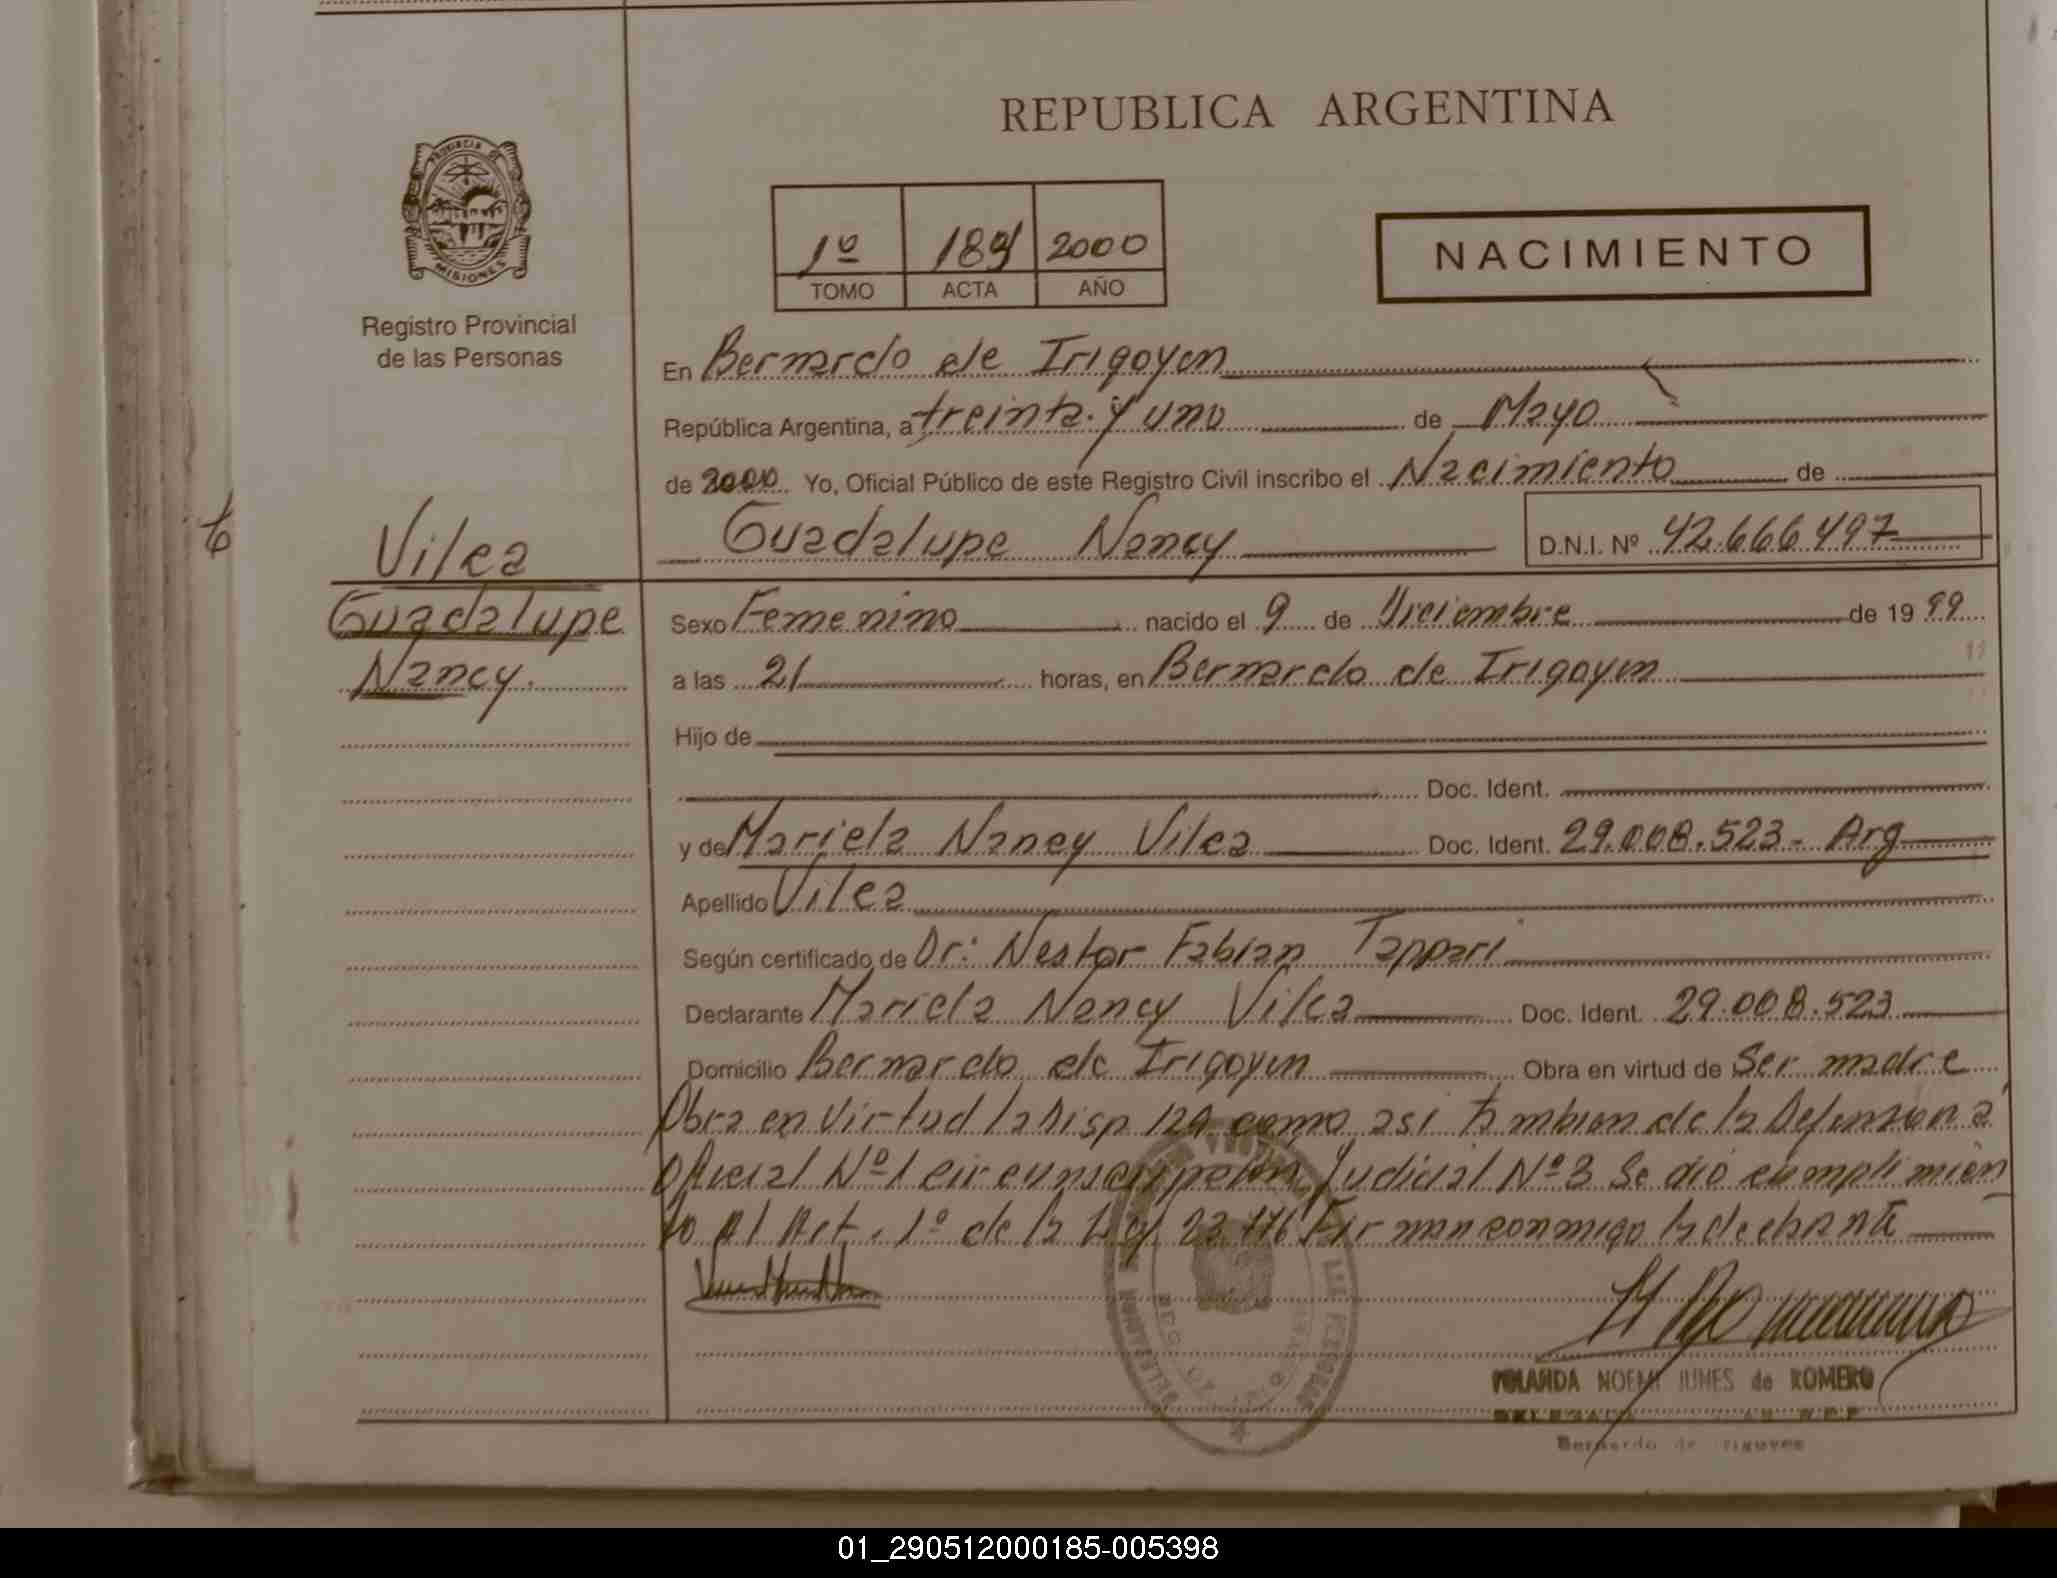 REPUBLICA ARGENTINA
PROVINCIA DE
MISIONES
Registro Provincial
de las Personas
1º 2000
TOMO ACTA AÑO
NACIMIENTO
En Bernardo de Irigoyen
República Argentina, a treinta y uno de Mayo
de 2000 Yo, Oficial Público de este Registro Civil inscribo el Nacimiento de
Guadalupe Nancy D.N.I. Nº 42.666.497
Vilca
Guadalupe
Nancy.
Sexo Femenino nacido el 9 de Diciembre de 19 99
a las 21 horas, en Bernardo de Irigoyen
Hijo de
Doc. Ident.
y de Mariela Nancy Vilca Doc. Ident. 29.008.523 - Arg
Apellido Vilca
Según certificado de Dr: Nestor Fabian Tappari
Declarante Mariela Nancy Vilca Doc. Ident. 29.008.523
Domicilio Bernardo de Irigoyen Obra en virtud de Ser madre
Obra en Virtud la Disp 129 como asi tambien de la Defensoria
Oficial Nº 1 circunscripcion Judicial Nº 3 Se dió cumplimien
to Al Art. 1º de la Ley 23.776 Firman conmigo la declarante
YOLANDA NOEMI JUNES de ROMERO
DELEGADA
Bernardo de Irigoyen
01_290512000185-005398